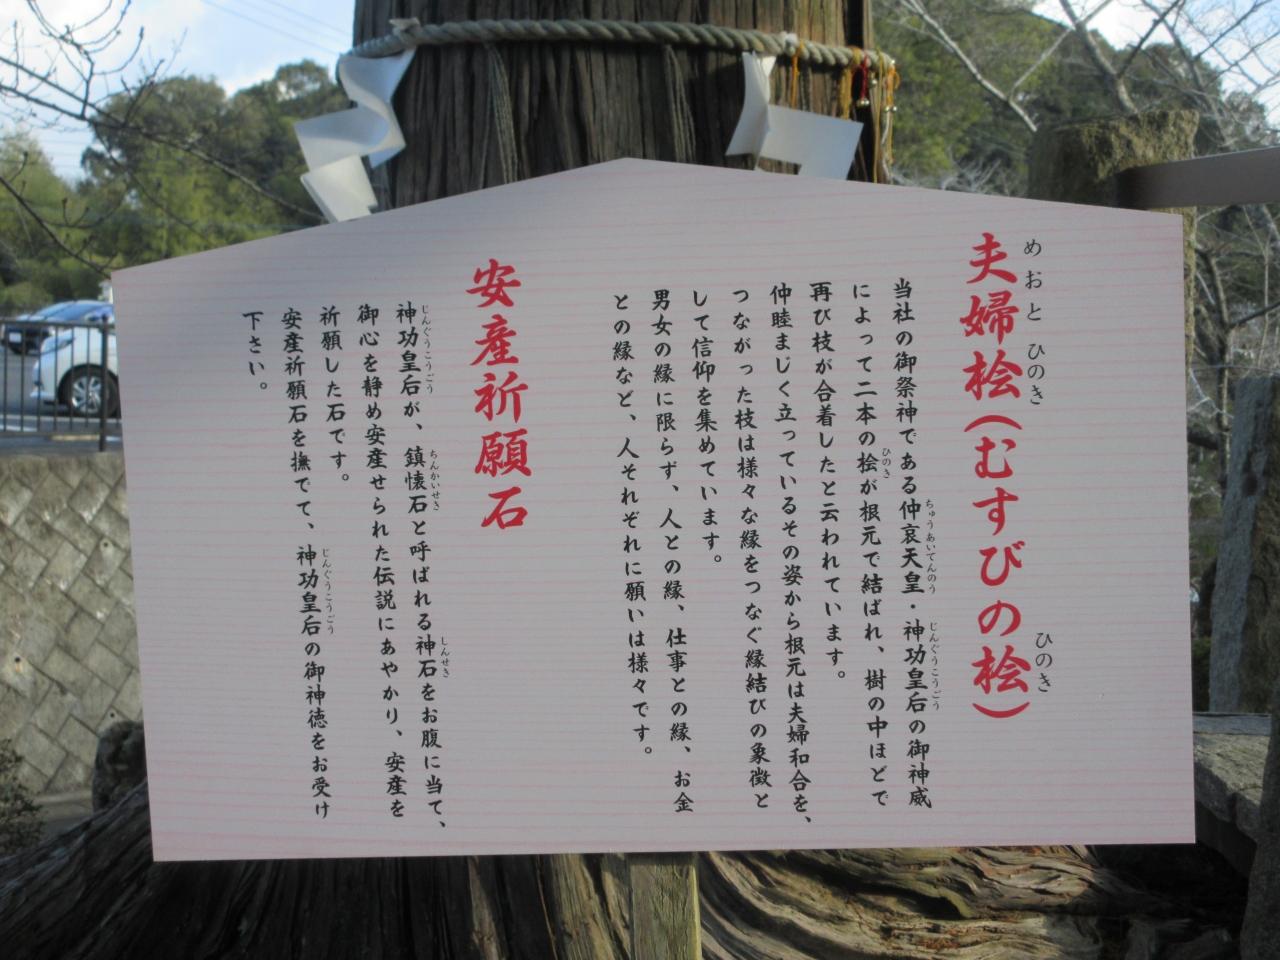 夫婦桧(むすびの桧)
めおとひのき
ひのき
当社の御祭神である仲哀天皇・神功皇后の御神威
ちゅうあいてんのう
じんぐうこうごう
によって二本の桧が根元で結ばれ、樹の中ほどで
ひのき
再び枝が合着したと云われています。
仲睦まじく立っているその姿から根元は夫婦和合を、
つながった枝は様々な縁をつなぐ縁結びの象徴と
して信仰を集めています。
男女の縁に限らず、人との縁、仕事との縁、お金
との縁など、人それぞれに願いは様々です。
安産祈願石
神功皇后が、鎮懐石と呼ばれる神石をお腹に当て、
じんぐうこうごう
ちんかいせき
しんせき
御心を静め安産せられた伝説にあやかり、安産を
祈願した石です。
安産祈願石を撫でて、神功皇后の御神徳をお受け
じんぐうこうごう
下さい。